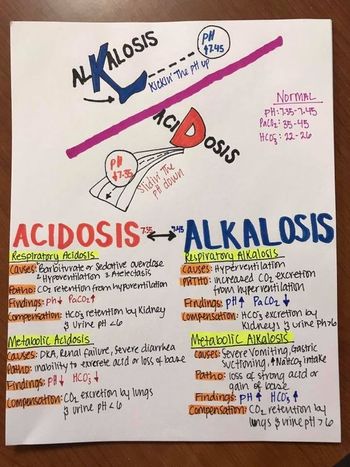 ALKALOSIS
PH
↑7.45
Kickin' The pH up
ACIDOSIS
PH
↓7.35
Slidin' The
pH down
NORMAL
PH: 7.35-7.45
PaCO₂: 35-45
HCO₃⁻: 22-26
ACIDOSIS 7.35 ↔ 7.45 ALKALOSIS
Respiratory Acidosis
Causes: Barbiturate or Sedative overdose
& Hypoventilation & Atelectasis
Patho: CO₂ retention from hypoventilation
Findings: PH↓ PaCO₂↑
Compensation: HCO₃ retention by Kidney
& Urine pH <6
Metabolic Acidosis
Causes: DKA, Renal Failure, Severe diarrhea
Patho: inability to excrete acid or loss of base
Findings: PH↓ HCO₃↓
Compensation: CO₂ excretion by lungs
& urine pH <6
Respiratory Alkalosis
Causes: Hyperventilation
Patho: increased CO₂ excretion
from hyperventilation
Findings: PH↑ PaCO₂↓
Compensation: HCO₃ excretion by
Kidneys & Urine pH>6
Metabolic Alkalosis
Causes: Severe Vomiting, Gastric
Suctioning, ↑NaHCO₃ intake
Patho: loss of strong acid or
gain of base
Findings: PH↑ HCO₃↑
Compensation: CO₂ retention by
lungs & urine pH >6